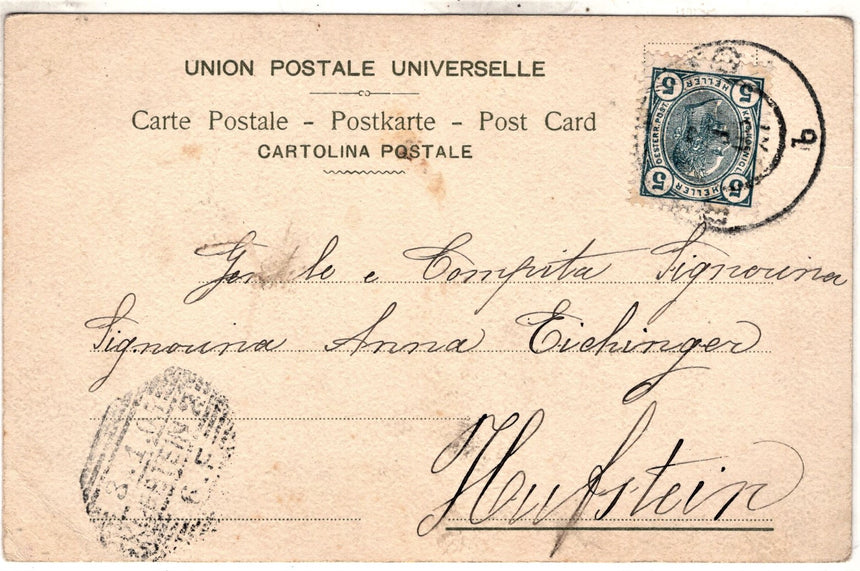 UNION POSTALE UNIVERSELLE
Carte Postale - Postkarte - Post Card
CARTOLINA POSTALE
5 HELLER 5
OESTERR. POST.
5 HELLER 5
b
Gentile e Compita Signorina
Signorina Anna Eichinger
Kufstein